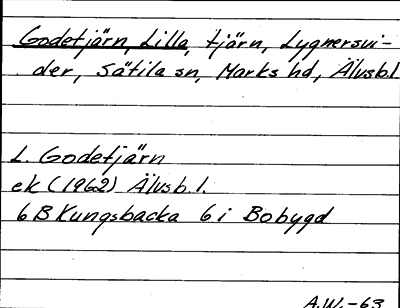 Godetjärn, Lilla, tjärn, Lygnersvi-
der, Sätila sn, Marks hd, Älvsb.l.
L. Godetjärn
ek (1962) Älvsb. l.
6B Kungsbacka 6i Bobygd
A.W.-63